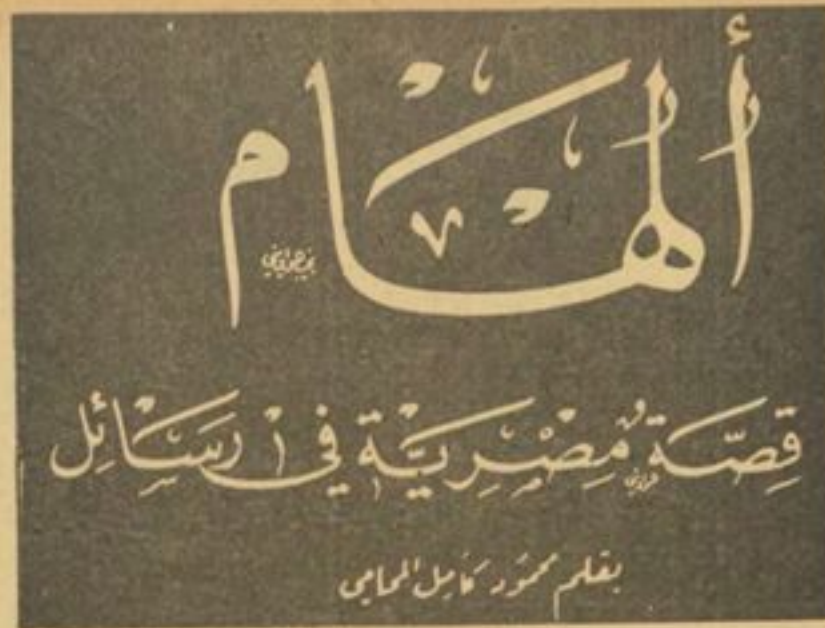 ألهام
قِصَّةٌ مِصْرِيَّة في ٦ رَسَائِل
بقلم محمود كامل المحامي